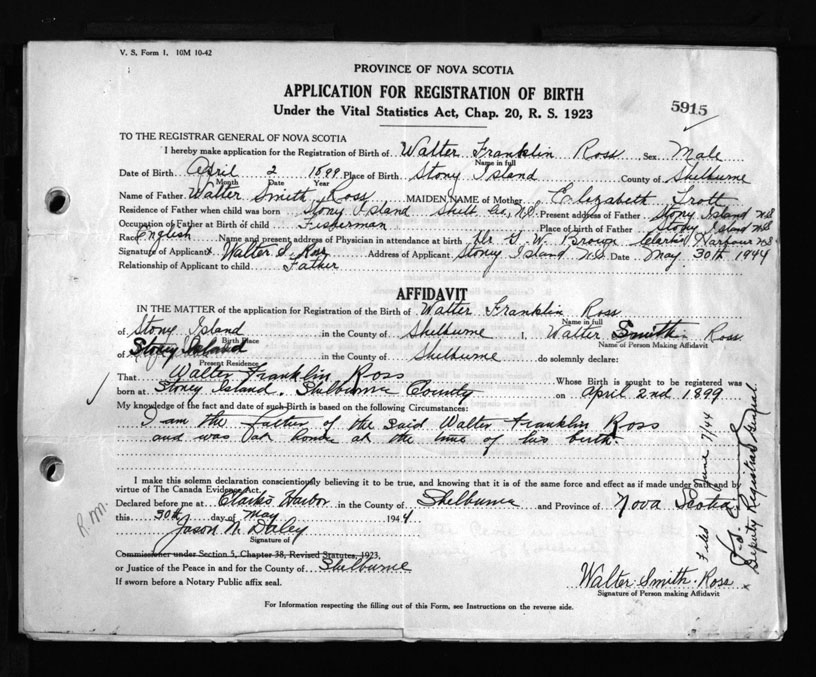 V. S. Form 1. 10M 10-42
PROVINCE OF NOVA SCOTIA
APPLICATION FOR REGISTRATION OF BIRTH
5915
Under the Vital Statistics Act, Chap. 20, R. S. 1923
TO THE REGISTRAR GENERAL OF NOVA SCOTIA
I hereby make application for the Registration of Birth of Walter Franklin Ross, Sex Male
Name in full
Date of Birth April 2 1899 Place of Birth Stony Island County of Shelburne
Month Date Year
Name of Father Walter Smith Ross MAIDEN NAME of Mother Elizabeth Trott
Residence of Father when child was born Stony Island Shelb. Co, N.S. Present address of Father Stony Island N.S.
Occupation of Father at Birth of child Fisherman Place of birth of Father Stony Island N.S.
Race English Name and present address of Physician in attendance at birth Dr G. W. Brown Clarks Harbour N.S.
Signature of Applicant x Walter S. Ross Address of Applicant Stony Island N.S. Date May 30th 1944
Relationship of Applicant to child Father
AFFIDAVIT
IN THE MATTER of the application for Registration of the Birth of Walter Franklin Ross
Name in full
of Stony Island in the County of Shelburne I, Walter Smith Ross
Birth Place Name of Person Making Affidavit
of Stoney Island in the County of Shelburne do solemnly declare:
Present Residence
That Walter Franklin Ross Whose Birth is sought to be registered was
born at Stoney Island, Shelburne County on April 2nd 1899
My knowledge of the fact and date of such Birth is based on the following Circumstances:
I am the father of the said Walter Franklin Ross
and was at home at the time of his birth.
I make this solemn declaration conscientiously believing it to be true, and knowing that it is of the same force and effect as if made under oath and by
virtue of The Canada Evidence Act.
Declared before me at Clark's Harbor in the County of Shelburne and Province of Nova Scotia
this 30th day of May 1944
R.M.
Jason N. Daley
Signature of
Commissioner under Section 5, Chapter 38, Revised Statutes, 1923,
or Justice of the Peace in and for the County of Shelburne
If sworn before a Notary Public affix seal.
Walter Smith Ross x
Signature of Person making Affidavit
For Information respecting the filling out of this Form, see Instructions on the reverse side.
Filed June 7/44
Deputy Registrar General.